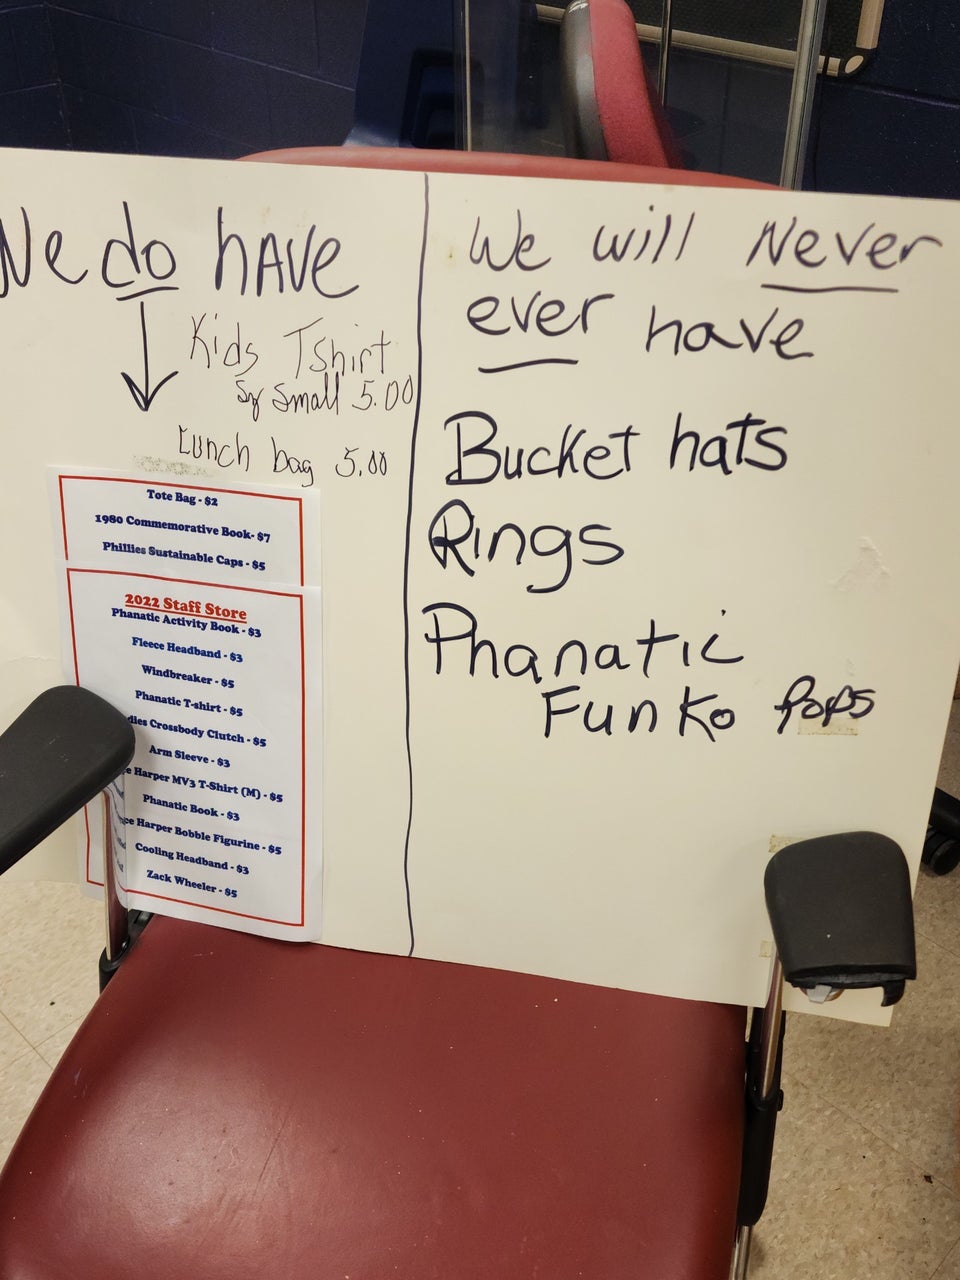 We do have
Kids Tshirt
Sz Small 5.00
Lunch bag 5.00
Tote Bag - $2
1980 Commemorative Book- $7
Phillies Sustainable Caps - $5
2022 Staff Store
Phanatic Activity Book - $3
Fleece Headband - $3
Windbreaker - $5
Phanatic T-shirt - $5
dies Crossbody Clutch - $5
Arm Sleeve - $3
e Harper MV3 T-Shirt (M) - $5
Phanatic Book - $3
ce Harper Bobble Figurine - $5
Cooling Headband - $3
Zack Wheeler - $5
We will Never
ever have
Bucket hats
Rings
Phanatic
Funko Pops